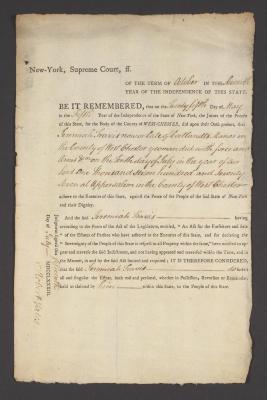 New-York, Supreme Court, ff.
OF THE TERM OF October IN THE
YEAR OF THE INDEPENDENCE OF THIS STATE.
BE IT REMEMBERED, that on the Twenty fifth Day of May
in the fifth Year of the Independence of the State of New-York, the Jurors of the People
of this State, for the Body of the County of WEST-CHESTER, did upon their Oath present, that
Jeremiah Travis now or late of Cortlandts Manor in
the County of West Chester yeoman did with force and
Arms &c on the Tenth day of July in the year of our
Lord One Thousand Seven hundred and Seventy
Seven at in the County of West Chester
adhere to the Enemies of this State, against the Peace of the People of the said State of New York
and their Dignity.
And the said Jeremiah Travis having
according to the Form of the Act of the Legislature, entitled, "An Act for the Forfeiture and Sale
"of the Estates of Persons who have adhered to the Enemies of this State, and for declaring the
"Sovereignty of the People of this State in respect to all Property within the same," been notified to ap-
pear and traverse the said Indictment, and not having appeared and traversed within the Time, and in
the Manner, in and by the said Act limited and required; IT IS THEREFORE CONSIDERED,
that the said Jeremiah Travis do
all and singular the Estate, both real and personal, whether in Possession, Reversion or Remainder,
held or claimed by him within this State, to the People of this State.
Day of July MDCCLXXXIII.